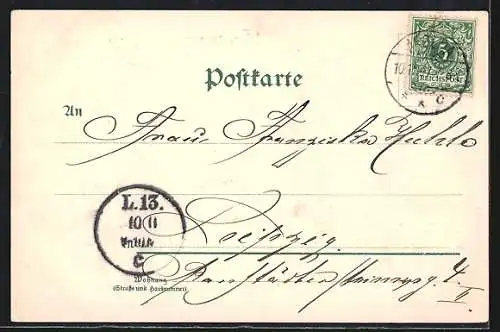 5
REICHSPOST
10
C
Postkarte
An
Frau Franziska
L. 13.
10 11
C
Leipzig.
Wohnung
(Straße und Hausnummer)
Ranstädter Steinweg 4
II